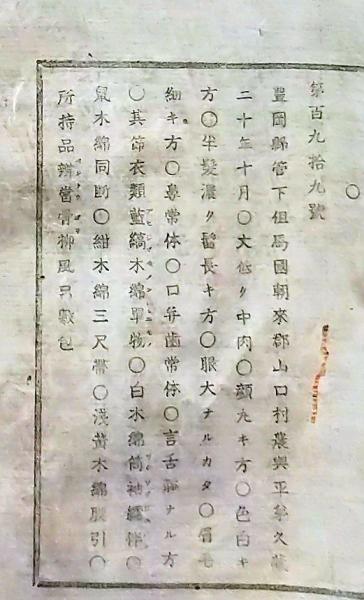 ○
第百九拾九號
豊岡縣管下但馬國朝來郡山口村農與平弟久藏
二十年十月○丈低ク中肉○顔丸キ方○色白キ
方○半髪濃ク髷長キ方○眼大ナルカタ○眉毛
細キ方○鼻常体○口并歯常体○言舌静ナル方
○其節衣類藍縞木綿單物○白木綿筒袖繻伴○
鼠木綿同断○紺木綿三尺帯○浅黄木綿股引○
所持品辨當骨柳風呂敷包